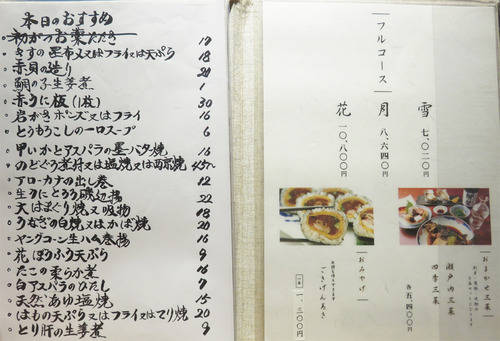 本日のおすすめ
初がつお藁たたき
・きすの昆布〆又はフライ又は天ぷら 18
・赤貝の造り 20
・鯛の子生姜煮 1
・赤うに板(1枚) 30
・岩がきポンズ又はフライ 16
・とうもろこしの一口スープ 6
・甲いかとアスパラの墨バター焼 16
・のどぐろ煮付又は塩焼又は西京焼
・アローカナの出し巻 12
・生うにとろろ磯辺揚 22
・天はまぐり焼又吸物 18
・うなぎの白焼又はかば焼 20
・ヤングコーン生ハム巻揚 16
・花ほおずき天ぷら 9
・たこの柔らか煮 16
・白アスパラのひたし 7
・天然あゆ塩焼 15
・はもの天ぷら又はフライ又はてり焼 20
・とり肝の生姜煮 9
フルコース
雪 七、〇二〇円
月 八、六四〇円
花 一〇、八〇〇円
おまかせ三菜
瀬戸内三菜
四季三菜
各五、四〇〇円
おみやげ
ごきげんまき
一、三〇〇円